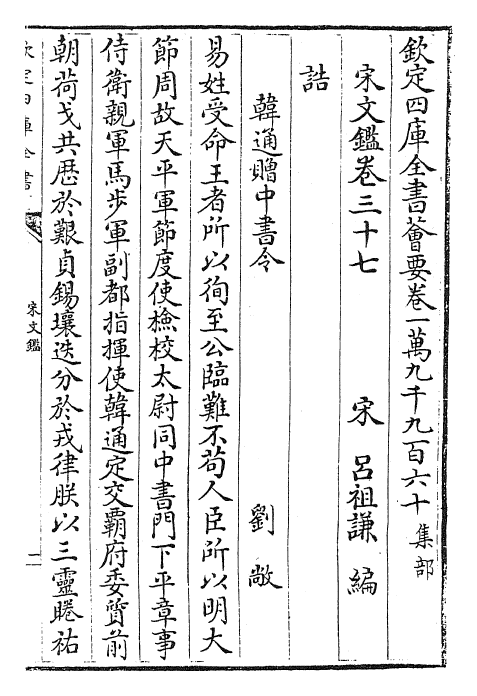 欽定四庫全書薈要卷一萬九千九百六十 集部
宋文鑑卷三十七
宋 呂祖謙 編
誥
韓通贈中書令
劉敞
易姓受命王者所以徇至公臨難不苟人臣所以明大
節周故天平軍節度使檢校太尉同中書門下平章事
侍衛親軍馬步軍副都指揮使韓通定交霸府委質前
朝荷戈共歴於艱貞錫壤迭分於戎律朕以三靈睠祐
欽定四庫全書
宋文鑑
二